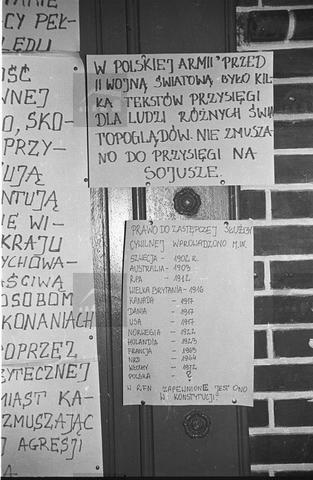 CY PEŁ-
LĘDU
W POLSKIEJ ARMII PRZED
II WOJNĄ ŚWIATOWĄ BYŁO KIL-
KA TEKSTÓW PRZYSIĘGI
DLA LUDZI RÓŻNYCH ŚWIA
TOPOGLĄDÓW. NIE ZMUSZA-
NO DO PRZYSIĘGI NA
SOJUSZE.
OŚĆ
WNEJ
O, SKO-
PRZY-
UJĄ
NTUJĄ
IE WI-
KRAJU
YCHOWA-
ŚCIWĄ
OSOBOM
KONANIACH
OPRZEZ
YTECZNEJ
MIAST KA-
ZMUSZAJĄC
J AGRESJI
PRAWO DO ZASTĘPCZEJ SŁUŻBY
CYWILNEJ WPROWADZONO M.IN.
SZWECJA - 1902 R.
AUSTRALIA - 1903
R.P.A. - 1912
WIELKA BRYTANIA - 1916
KANADA - 1917
DANIA - 1917
USA - 1917
NORWEGIA - 1922
HOLANDIA - 1923
FRANCJA - 1963
NRD - 1964
WŁOCHY - 1972
POLSKA - ?
W RFN ZAPEWNIONE JEST ONO
W KONSTYTUCJI!